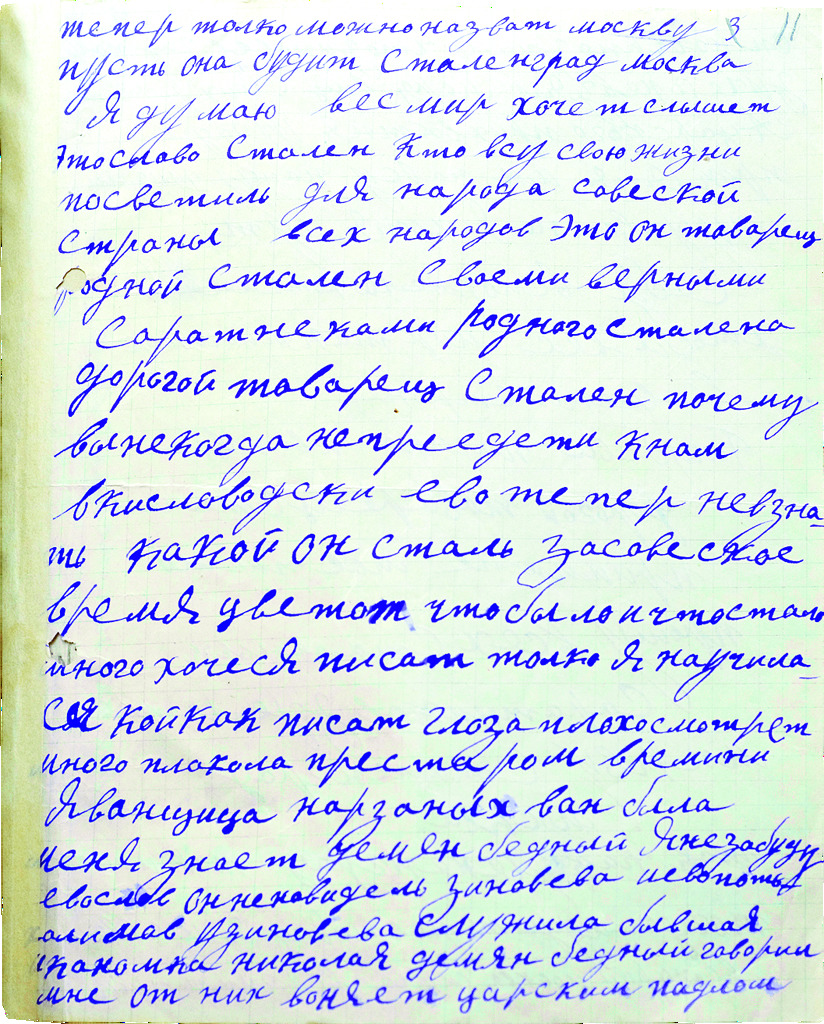 тепер толко можно назват москву 3 11
пусть она будит Сталенград москва
я думаю весмир хочет слышет
это слово Стален Кто всу свою жизни
посветиль для народа совеской
страны всех народов это он товарещ
родной Стален Своеми верными
Саратнеками родного Сталена
дорогой товарещ Стален почему
вы некогда непреедети Кнам
вкисловодски ево тепер невзна-
ть какой он сталь засовеское
время цветот что было ичто стало
много хочеся писат толко я научила-
ся койкак писат глоза плохо смотрет
много плакола престаром времини
я ванщица нарзаных ван была
меня знает демян бедный я незабуду
евослов онненовидель зиновева
узиновева служила бывшая
Николая демян бедный говорил
мне от них воняет царским падлом